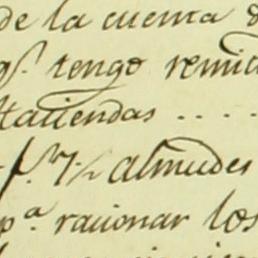 de la cuenta
qs. tengo remiti
Haciendas ....
7½ almudes
pa. racionar los